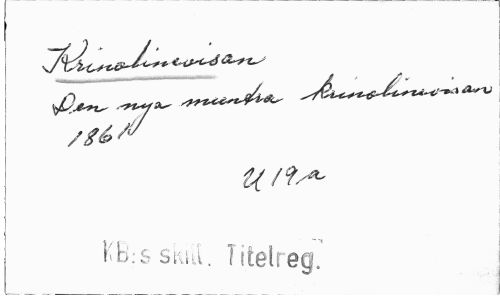 Krinolinevisan
Den nya muntra krinolinevisan
1861
U 19 a
KB:s skill. Titelreg.